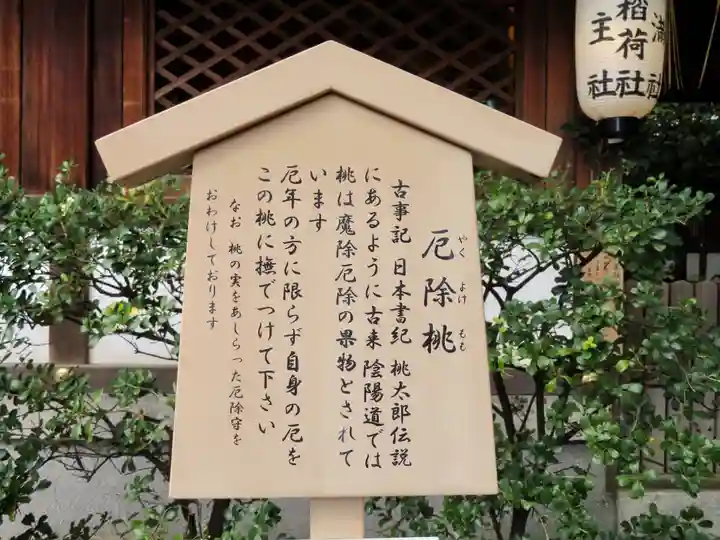 厄除桃
やく よけ もも
古事記 日本書紀 桃太郎伝説
にあるように古来 陰陽道では
桃は魔除厄除の果物とされて
います
厄年の方に限らず自身の厄を
この桃に撫でつけて下さい
なお 桃の実をあしらった厄除守を
おわけしております
稲荷社
主社